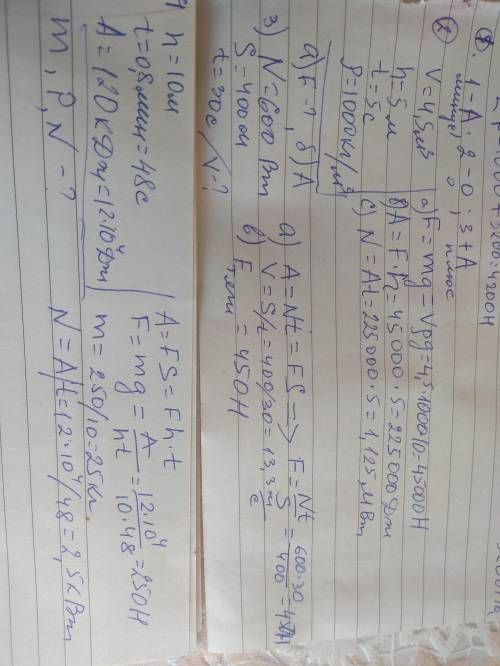 1 - А · 2 - 0 · 3 + А
минус о плюс
② V = 4,5 м³
h = 5 м
t = 5с
ρ = 1000 кг/м³
а) F - ?, б) А
а) F = mg = Vρg = 4,5·1000·10 = 45000 Н
в) A = F·h = 45000 · 5 = 225000 Дж
с) N = At = 225000 · 5 = 1,125 МВт
3) N = 600 Вт
S = 400 м
t = 30с / V - ?
а) A = Nt = FS => F = Nt/S = 600·30/400 = 45 Н
V = S/t = 400/30 = 13,3 м/с
в) Fтяги = 450 Н
h = 10 м
t = 0,8 мин = 48с
A = 120 кДж = 12·10⁴ Дж
m, P, N - ?
A = FS = Fh·t
F = mg = A/ht = 12·10⁴/10·48 = 250 Н
m = 250/10 = 25 кг
N = A/t = 12·10⁴/48 = 2,5 кВт